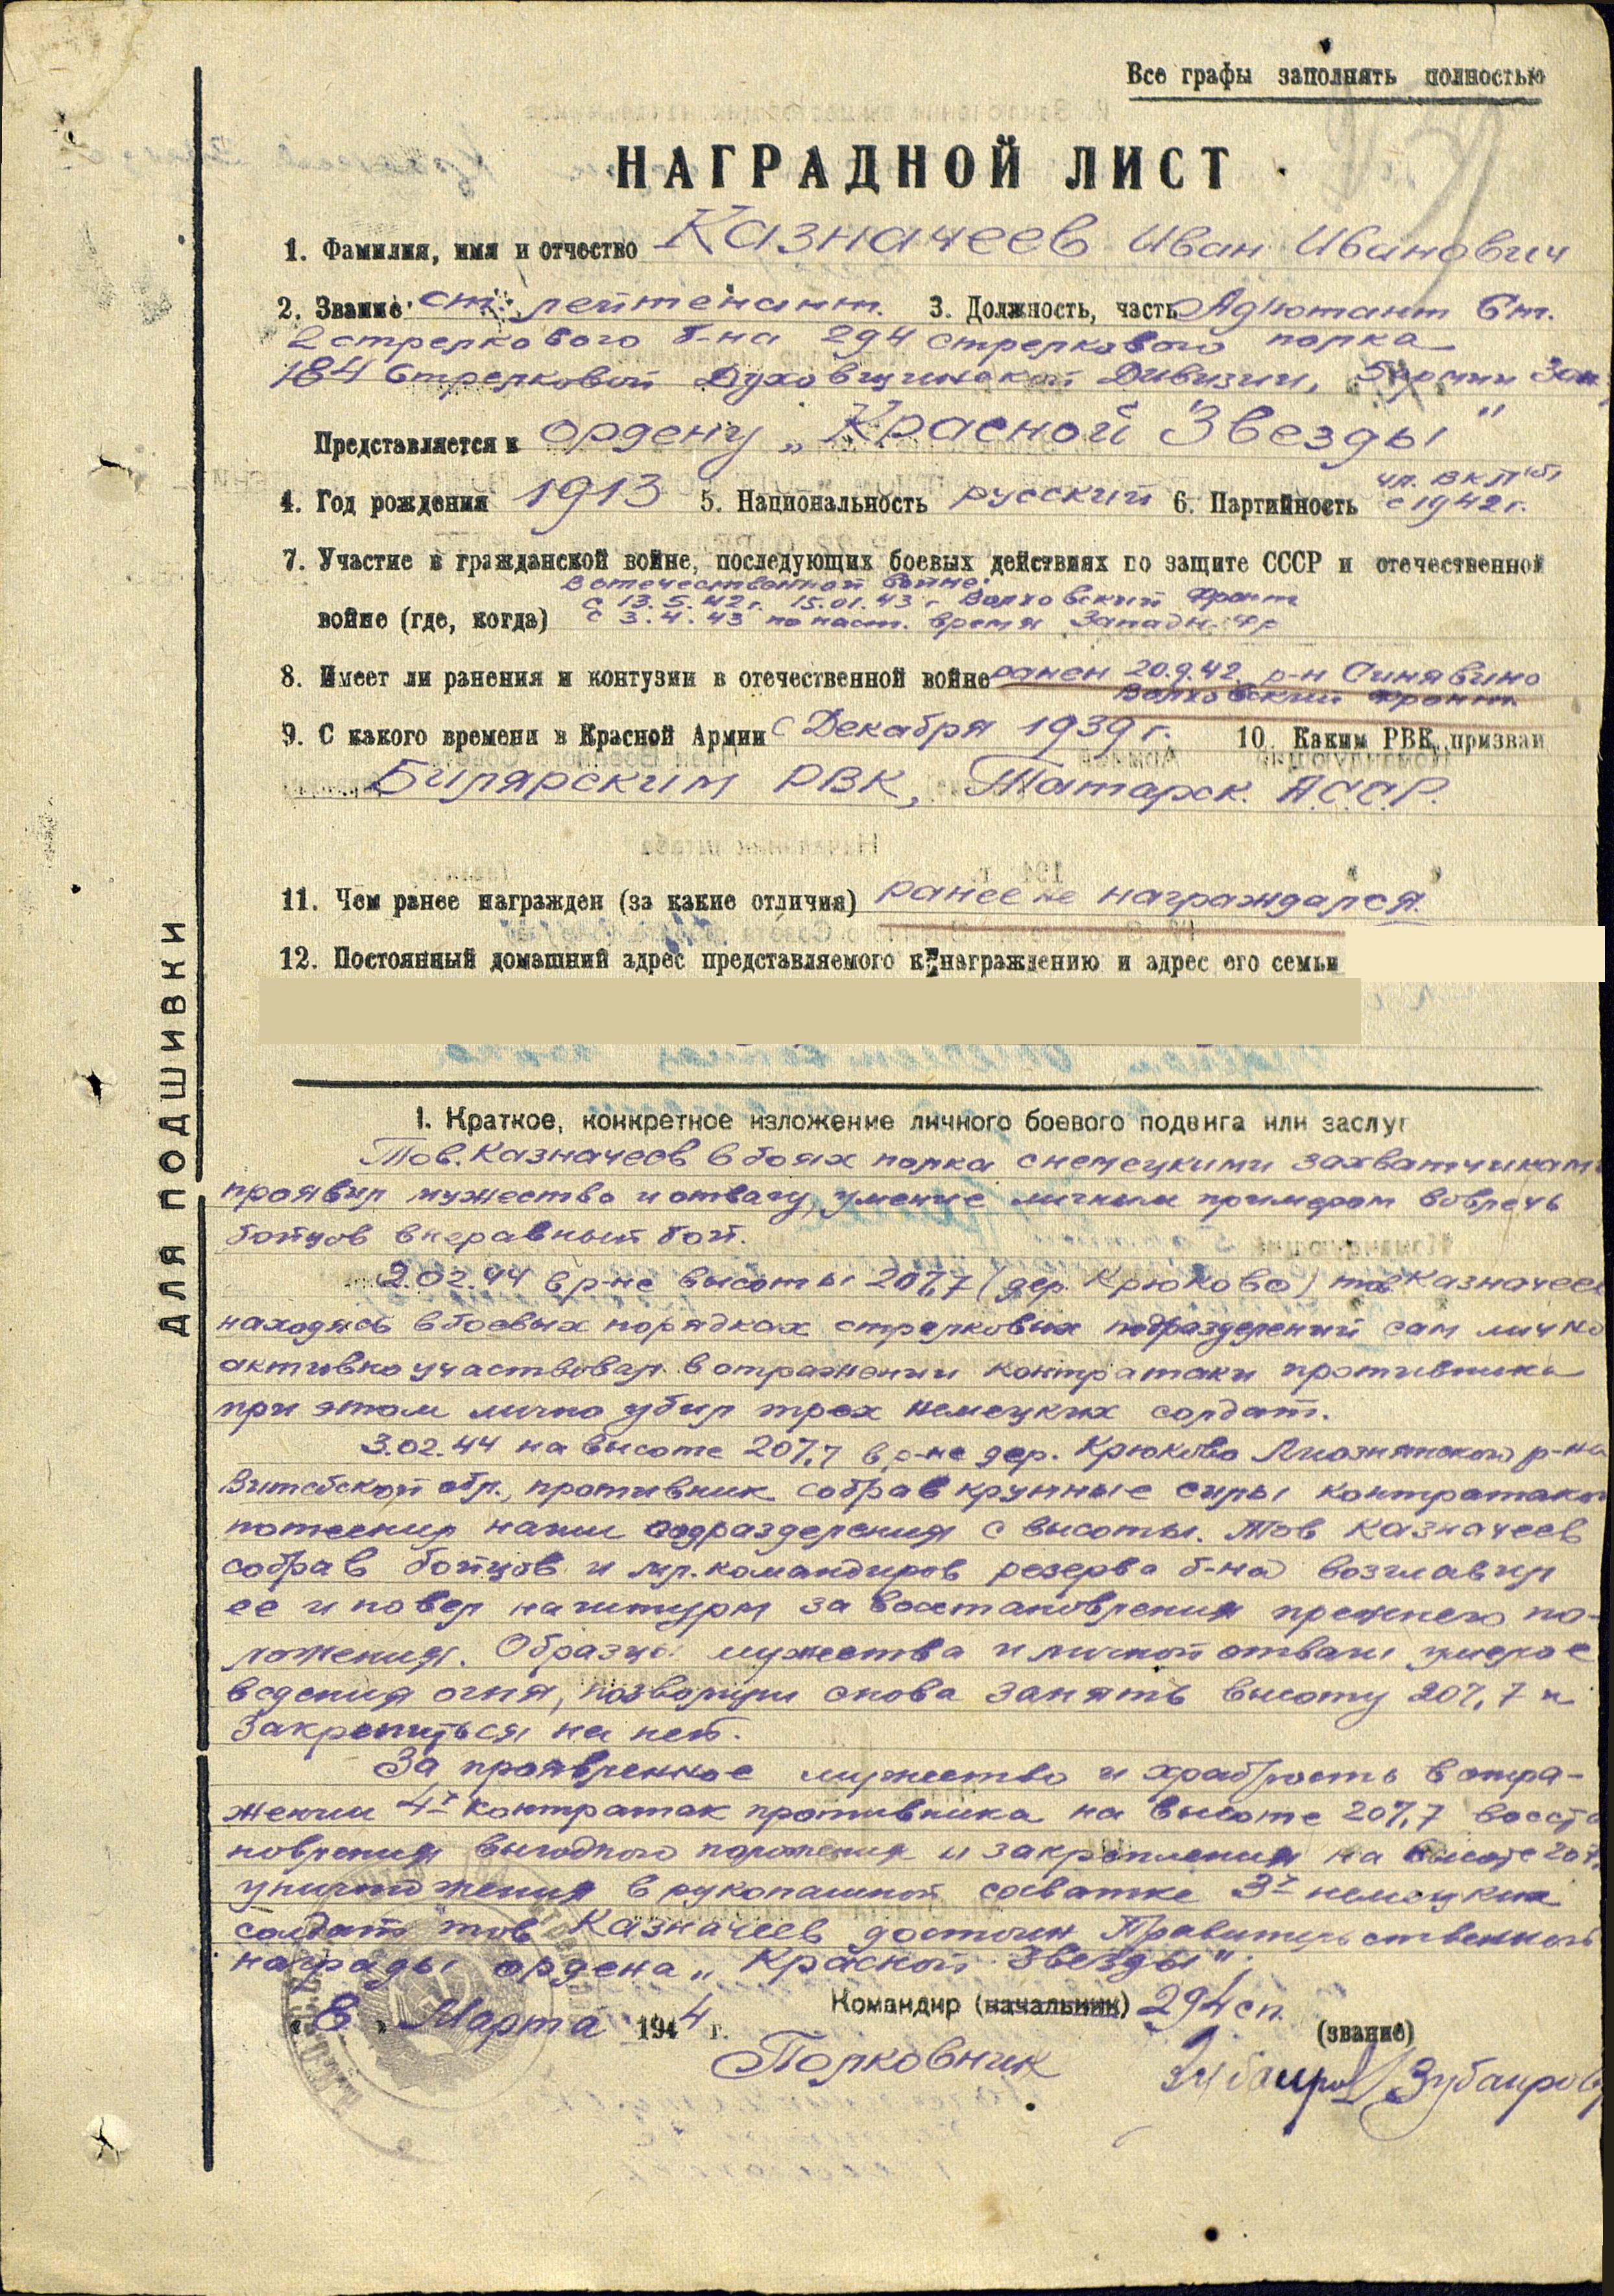 Все графы заполнять полностью
НАГРАДНОЙ ЛИСТ
1. Фамилия, имя и отчество Казначеев Иван Иванович
2. Звание ст. лейтенант. 3. Должность, часть Адъютант Ст.
2 стрелкового б-на 294 стрелкового полка
184 Стрелковой Духовщинской Дивизии, 5 армии Зап.
Представляется к ордену „Красной Звезды"
чл. ВКП(б)
4. Год рождения 1913 5. Национальность русский 6. Партийность с 1942 г.
7. Участие в гражданской войне, последующих боевых действиях по защите СССР и отечественной
В отечественной войне:
с 13.5.42 г. 15.01.43 г Волховский Фронт
войне (где, когда) с 3.4.43 по наст. время Западн. фр
8. Имеет ли ранения и контузии в отечественной войне ранен 20.9.42. р-н Синявино
Волховский Фронт.
9. С какого времени в Красной Армии С Декабря 1939 г. 10. Каким РВК призван
Билярским РВК, Татарск. А.С.С.Р.
11. Чем ранее награжден (за какие отличия) ранее не награждался.
12. Постоянный домашний адрес представляемого к награждению и адрес его семьи
ДЛЯ ПОДШИВКИ
I. Краткое, конкретное изложение личного боевого подвига или заслуг
Тов. Казначеев в боях полка с немецкими захватчиками
проявил мужество и отвагу, умение личным примером вовлечь
бойцов в неравный бой.
2.02.44 в р-не высоты 207,7 (дер. Крюково) тов Казначеев
находясь в боевых порядках стрелковых подразделений сам лично
активно участвовал в отражении контратаки противника
при этом лично убил трех немецких солдат.
3.02.44 на высоте 207,7 в р-не дер. Крюково Лиознянского р-на
Витебской обл., противник собрав крупные силы контратаковал
потеснил наши подразделения с высоты. Тов Казначеев
собрав бойцов и мл. командиров резерва б-на возглавил
ее и повел на штурм за восстановления прежнего по-
ложения. Образцы мужества и личной отваги умелое
ведения огня, позволили снова занять высоту 207,7 и
Закрепиться на ней.
За проявленное мужество и храбрость в отра-
жении 4х контратак противника на высоте 207,7 восста
новления выгодного положения и закрепления на высоте 207,7
уничтожения в рукопашной схватке 3х немецких
солдат тов Казначеев достоин Правительственной
награды ордена „Красной Звезды".
Командир (начальник) 294 сп.
„8" Марта 1944 г. (звание)
Полковник Зубаиров /Зубаиров/